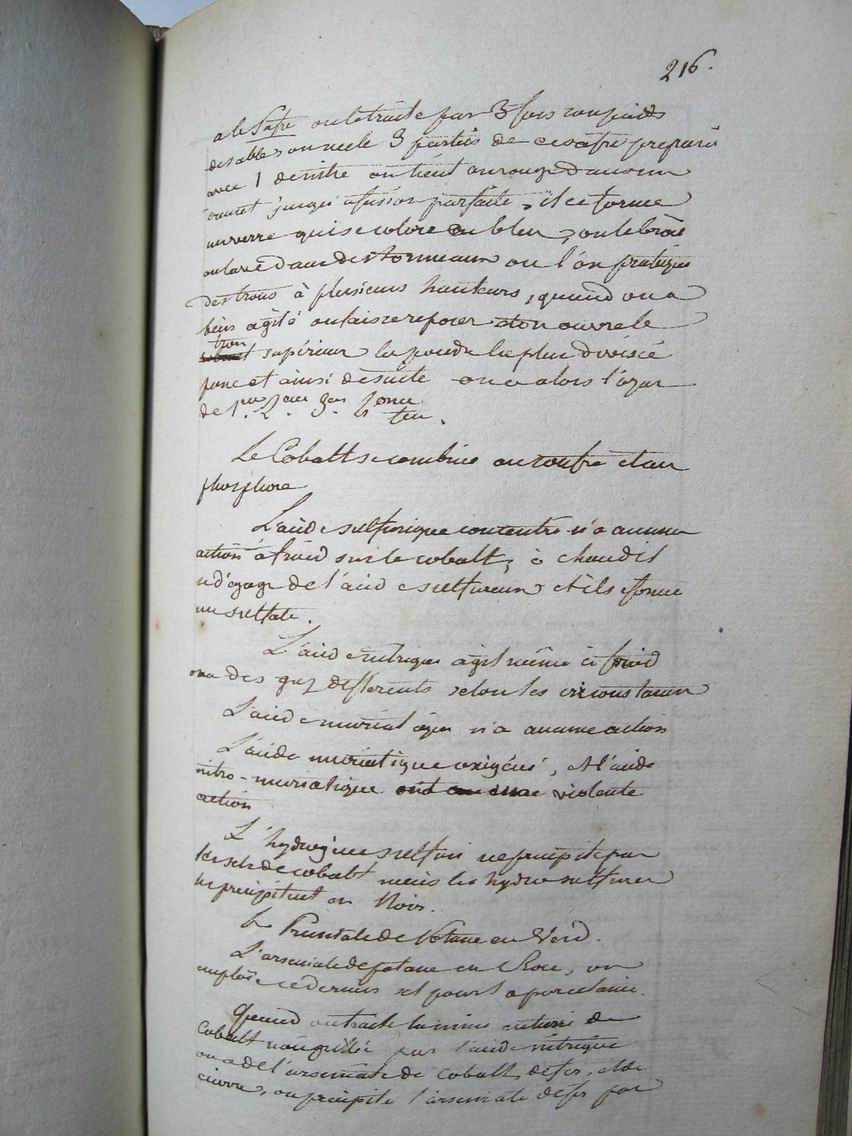 216.
a le Safre on le traite par 3 fois son poids
de sable on mele 3 parties de ce safre preparé
avec 1 de nitre on tient au rouge dans un
creuset jusqu'a fusion parfaite, il se forme
un verre qui se colore en bleu, on le broie
on lave dans des tonneaux ou l'on pratique
des trous à plusieurs hauteurs, quand on a
bien agité on laisse reposer et on ouvre le
trou superieur la poudre la plus divisée
passe et ainsi de suite on a alors l'azur
de 1er 2e 3e 4e feu.
Le Cobalt se combine au soufre et au
phosphore
L'acide sulfurique concentré n'a aucune
action à froid sur le cobalt, à chaud il
se dégage de l'acide sulfureux et il se forme
un sulfate.
L'acide nitrique agit même à froid
on a des gaz differents selon les circonstances
L'acide muriatique n'a aucune action
L'acide muriatique oxigéné, et l'acide
nitro-muriatique ont une violente
action
L'hydrogène sulfuré ne precipite pas
les sels de cobalt mais les hydrosulfures
le precipitent en Noir.
le Prussiate de Potasse en Verd.
L'arseniate de potasse en Rose, on
emploie ce dernier sel pour la porcelaine.
Quand on traite la mine de
Cobalt par l'acide nitrique
on a de l'arseniate de cobalt, de fer, et de
cuivre, on precipite l'arseniate de fer par